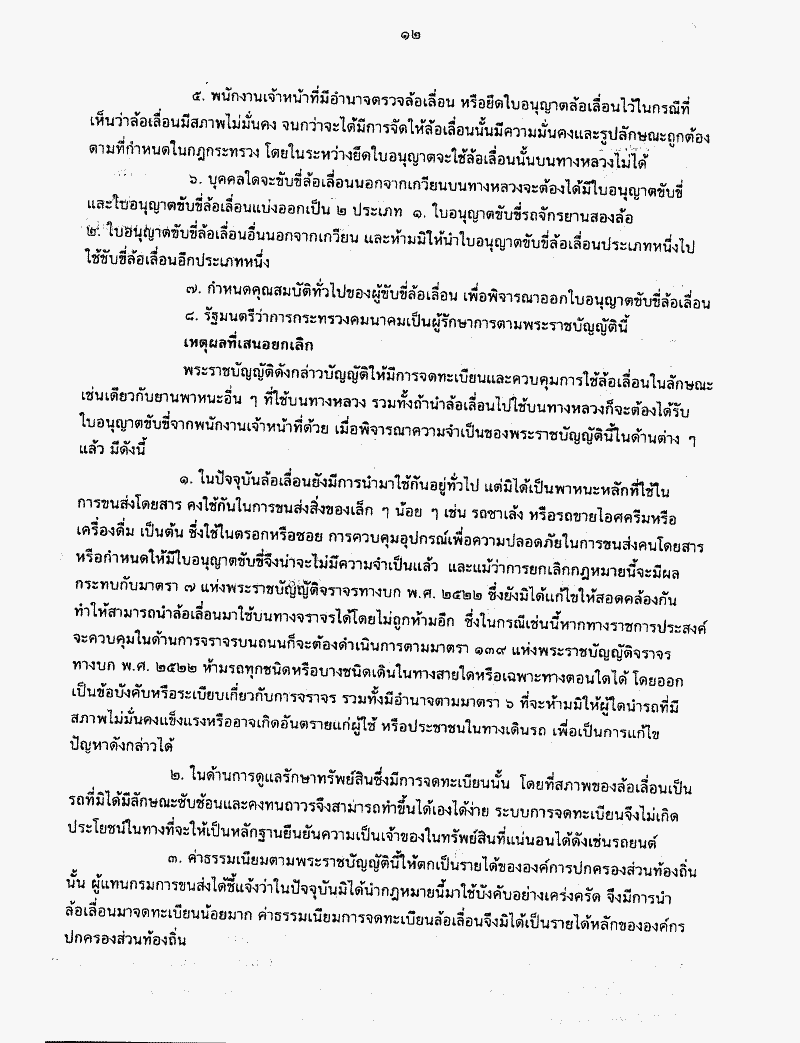 ๑๒
๕. พนักงานเจ้าหน้าที่มีอำนาจตรวจล้อเลื่อน หรือยึดใบอนุญาตล้อเลื่อนไว้ในกรณีที่
เห็นว่าล้อเลื่อนมีสภาพไม่มั่นคง จนกว่าจะได้มีการจัดให้ล้อเลื่อนนั้นมีความมั่นคงและรูปลักษณะถูกต้อง
ตามที่กำหนดในกฎกระทรวง โดยในระหว่างยึดใบอนุญาตจะใช้ล้อเลื่อนนั้นบนทางหลวงไม่ได้
๖. บุคคลใดจะขับขี่ล้อเลื่อนนอกจากเกวียนบนทางหลวงจะต้องได้มีใบอนุญาตขับขี่
และใบอนุญาตขับขี่ล้อเลื่อนแบ่งออกเป็น ๒ ประเภท ๑. ใบอนุญาตขับขี่รถจักรยานสองล้อ
๒. ใบอนุญาตขับขี่ล้อเลื่อนอื่นนอกจากเกวียน และห้ามมิให้นำใบอนุญาตขับขี่ล้อเลื่อนประเภทหนึ่งไป
ใช้ขับขี่ล้อเลื่อนอีกประเภทหนึ่ง
๗. กำหนดคุณสมบัติทั่วไปของผู้ขับขี่ล้อเลื่อน เพื่อพิจารณาออกใบอนุญาตขับขี่ล้อเลื่อน
๘. รัฐมนตรีว่าการกระทรวงคมนาคมเป็นผู้รักษาการตามพระราชบัญญัตินี้
เหตุผลที่เสนอยกเลิก
พระราชบัญญัติดังกล่าวบัญญัติให้มีการจดทะเบียนและควบคุมการใช้ล้อเลื่อนในลักษณะ
เช่นเดียวกับยานพาหนะอื่น ๆ ที่ใช้บนทางหลวง รวมทั้งถ้านำล้อเลื่อนไปใช้บนทางหลวงก็จะต้องได้รับ
ใบอนุญาตขับขี่จากพนักงานเจ้าหน้าที่ด้วย เมื่อพิจารณาความจำเป็นของพระราชบัญญัตินี้ในด้านต่าง ๆ
แล้ว มีดังนี้
๑. ในปัจจุบันล้อเลื่อนยังมีการนำมาใช้กันอยู่ทั่วไป แต่มิได้เป็นพาหนะหลักที่ใช้ใน
การขนส่งโดยสาร คงใช้กันในการขนส่งสิ่งของเล็ก ๆ น้อย ๆ เช่น รถซาเล้ง หรือรถขายไอศครีมหรือ
เครื่องดื่ม เป็นต้น ซึ่งใช้ในตรอกหรือซอย การควบคุมอุปกรณ์เพื่อความปลอดภัยในการขนส่งคนโดยสาร
หรือกำหนดให้มีใบอนุญาตขับขี่จึงน่าจะไม่มีความจำเป็นแล้ว และแม้ว่าการยกเลิกกฎหมายนี้จะมีผล
กระทบกับมาตรา ๗ แห่งพระราชบัญญัติจราจรทางบก พ.ศ. ๒๕๒๒ ซึ่งยังมิได้แก้ไขให้สอดคล้องกัน
ทำให้สามารถนำล้อเลื่อนมาใช้บนทางจราจรได้โดยไม่ถูกห้ามอีก ซึ่งในกรณีเช่นนี้หากทางราชการประสงค์
จะควบคุมในด้านการจราจรบนถนนก็จะต้องดำเนินการตามมาตรา ๑๓๙ แห่งพระราชบัญญัติจราจร
ทางบก พ.ศ. ๒๕๒๒ ห้ามรถทุกชนิดหรือบางชนิดเดินในทางสายใดหรือเฉพาะทางตอนใดได้ โดยออก
เป็นข้อบังคับหรือระเบียบเกี่ยวกับการจราจร รวมทั้งมีอำนาจตามมาตรา ๖ ที่จะห้ามมิให้ผู้ใดนำรถที่มี
สภาพไม่มั่นคงแข็งแรงหรืออาจเกิดอันตรายแก่ผู้ใช้ หรือประชาชนในทางเดินรถ เพื่อเป็นการแก้ไข
ปัญหาดังกล่าวได้
๒. ในด้านการดูแลรักษาทรัพย์สินซึ่งมีการจดทะเบียนนั้น โดยที่สภาพของล้อเลื่อนเป็น
รถที่มิได้มีลักษณะซับซ้อนและคงทนถาวรจึงสามารถทำขึ้นได้เองได้ง่าย ระบบการจดทะเบียนจึงไม่เกิด
ประโยชน์ในทางที่จะให้เป็นหลักฐานยืนยันความเป็นเจ้าของในทรัพย์สินที่แน่นอนได้ดังเช่นรถยนต์
๓. ค่าธรรมเนียมตามพระราชบัญญัตินี้ให้ตกเป็นรายได้ขององค์การปกครองส่วนท้องถิ่น
นั้น ผู้แทนกรมการขนส่งได้ชี้แจ้งว่าในปัจจุบันมิได้นำกฎหมายนี้มาใช้บังคับอย่างเคร่งครัด จึงมีการนำ
ล้อเลื่อนมาจดทะเบียนน้อยมาก ค่าธรรมเนียมการจดทะเบียนล้อเลื่อนจึงมิได้เป็นรายได้หลักขององค์กร
ปกครองส่วนท้องถิ่น